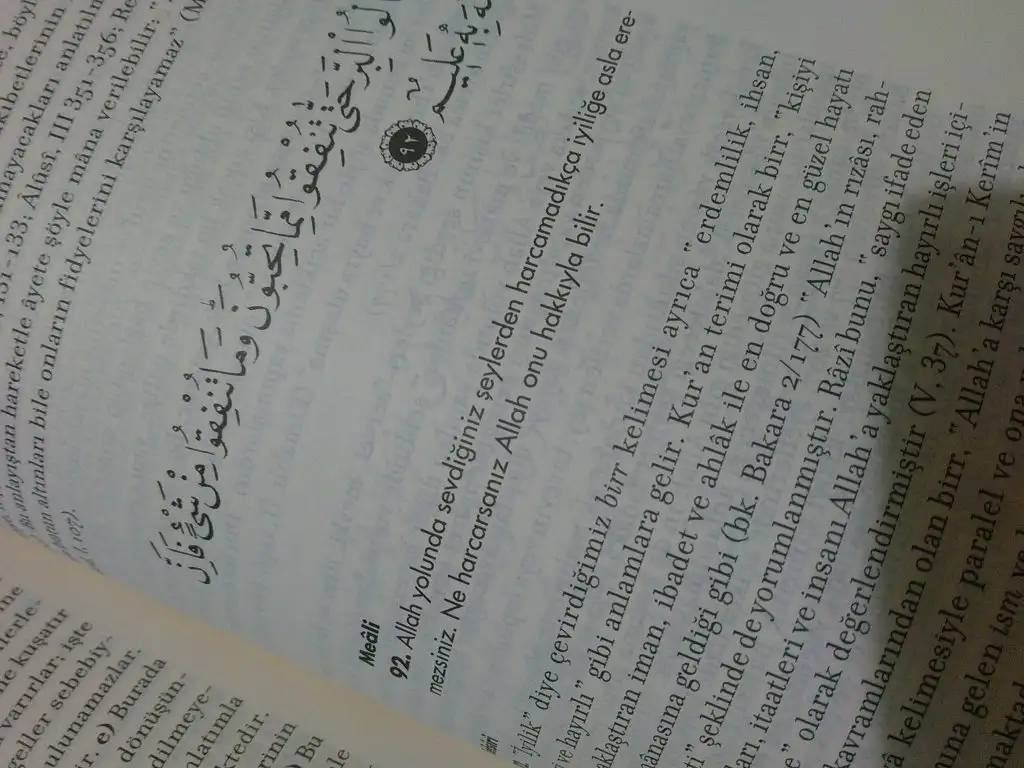 131-133; Âlûsî, III 351-356; Re
Bu anlayıştan hareketle âyete şöyle mâna verilebilir: "
altınları bile onların fidyelerini karşılayamaz" (M
, 107).
تُنْفِقُوا مِمَّا تُحِبُّونَ وَمَا تُنْفِقُوا مِنْ شَيْءٍ فَإِنَّ
عَلِيمٌ ﴿٩٢﴾
Meâli
92. Allah yolunda sevdiğiniz şeylerden harcamadıkça iyiliğe asla ere-
mezsiniz. Ne harcarsanız Allah onu hakkıyla bilir.
"İyilik" diye çevirdiğimiz birr kelimesi ayrıca "erdemlilik, ihsan,
ve hayırlı" gibi anlamlara gelir. Kur'an terimi olarak birr, "kişiyi
aklaştıran iman, ibadet ve ahlâk ile en doğru ve en güzel hayatı
mânasına geldiği gibi (bk. Bakara 2/177) "Allah'ın rızâsı, rah-
ti" şeklinde de yorumlanmıştır. Râzî bunu, "saygı ifade eden
arı, itaatleri ve insanı Allah'a yaklaştıran hayırlı işleri içi-
" olarak değerlendirmiştir (V, 37). Kur'ân-ı Kerîm'in
kavramlarından olan birr, "Allah'a karşı saygılı
â kelimesiyle paralel ve ona
una gelen ism ve
maktad
varırlar; işte
geller sebebiy-
ulunamazlar.
ir. e) Burada
dönüşün-
dilmeye-
alatımla
ktedir.
erinin
) Bu
le